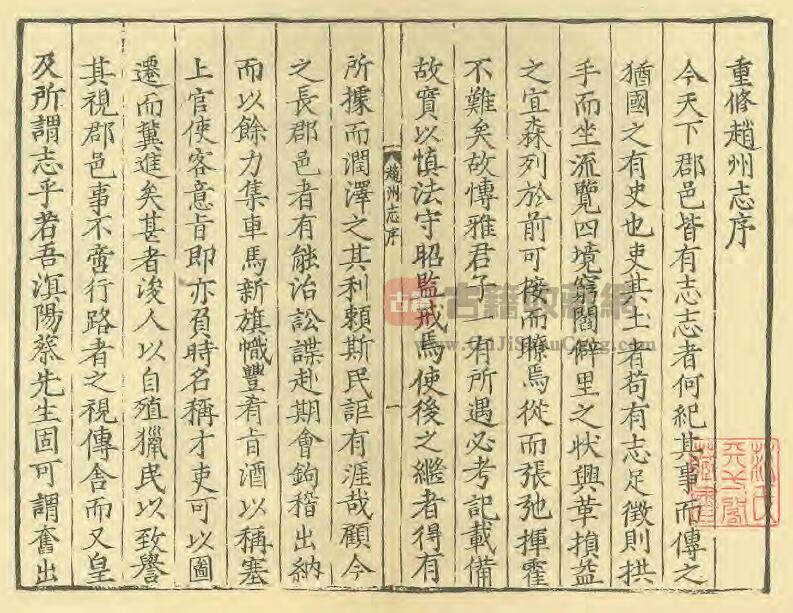 重修趙州志序
今天下郡邑皆有志志者何紀其事而傳之
猶國之有史也吏其土者苟有志足徵則拱
手而坐流覽四境窮閻僻里之狀興革損益
之宜森列於前可接而瞭焉從而張弛揮霍
不難矣故愽雅君子一有所遇必考記載備
故實以慎法守昭監戒焉使後之繼者得有
趙州志序
一
所據而潤澤之其利賴斯民詎有涯哉顧今
之長郡邑者有能治訟諜赴期會鉤稽出納
而以餘力集車馬新旗幟豐肴旨酒以稱塞
上官使客意旨即亦負時名稱才吏可以圖
遷而冀進矣甚者浚人以自殖獵民以致譽
其視郡邑事不啻行路者之視傳舍而又皇
及所謂志乎若吾滇陽蔡先生固可謂奮出
古籍 古籍收藏網
www.GuJiShouCang.com